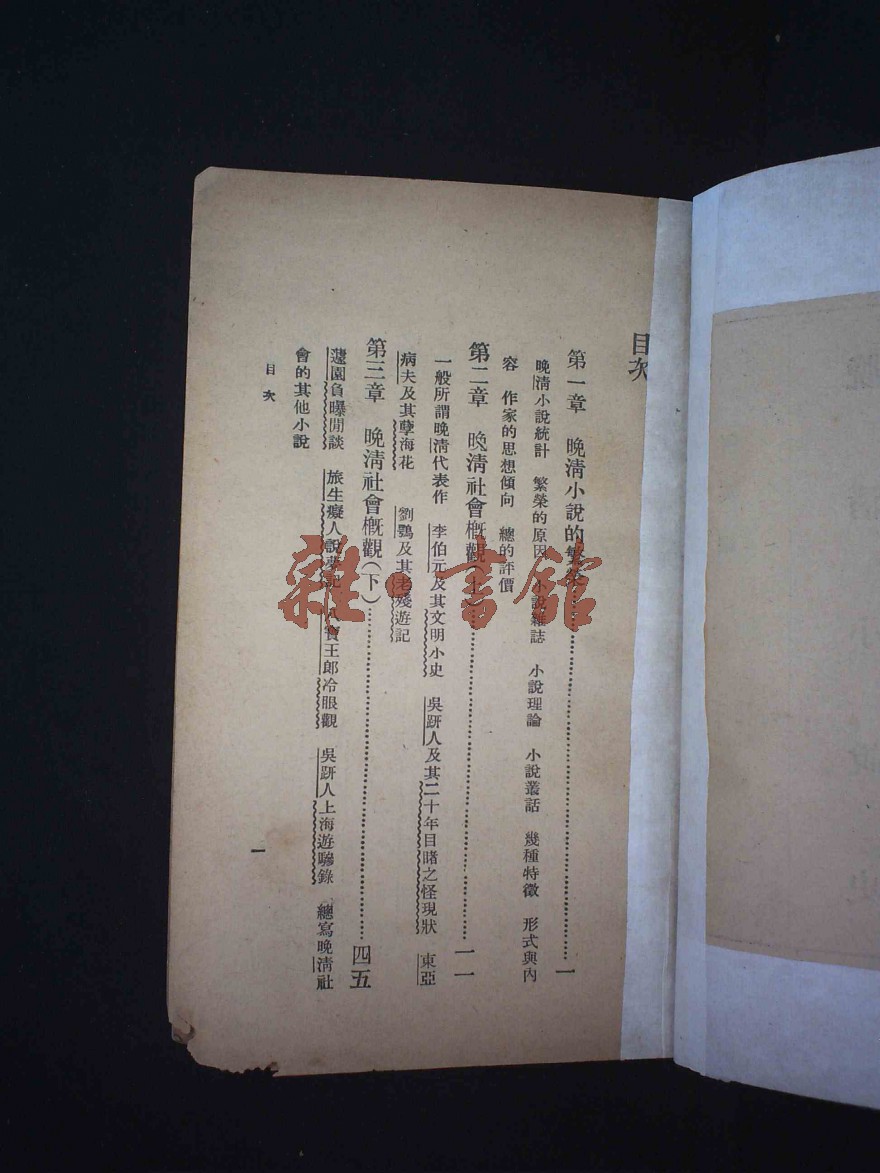 目次
第一章 晚清小說的繁榮………………一
晚清小說統計 繁榮的原因 小說雜誌 小說理論 小說叢話 幾種特徵 形式與內
容 作家的思想傾向 總的評價
第二章 晚清社會概觀(上)………………一一
一般所謂晚清代表作 李伯元及其文明小史 吳趼人及其二十年目睹之怪現狀 東亞
病夫及其孽海花 劉鶚及其老殘遊記
第三章 晚清社會概觀(下)………………四五
蘧園負曝閒談 旅生癡人說夢記 八寶王郎冷眼觀 吳趼人上海遊驂錄 總寫晚清社
會的其他小說
目次
一
雜·書館